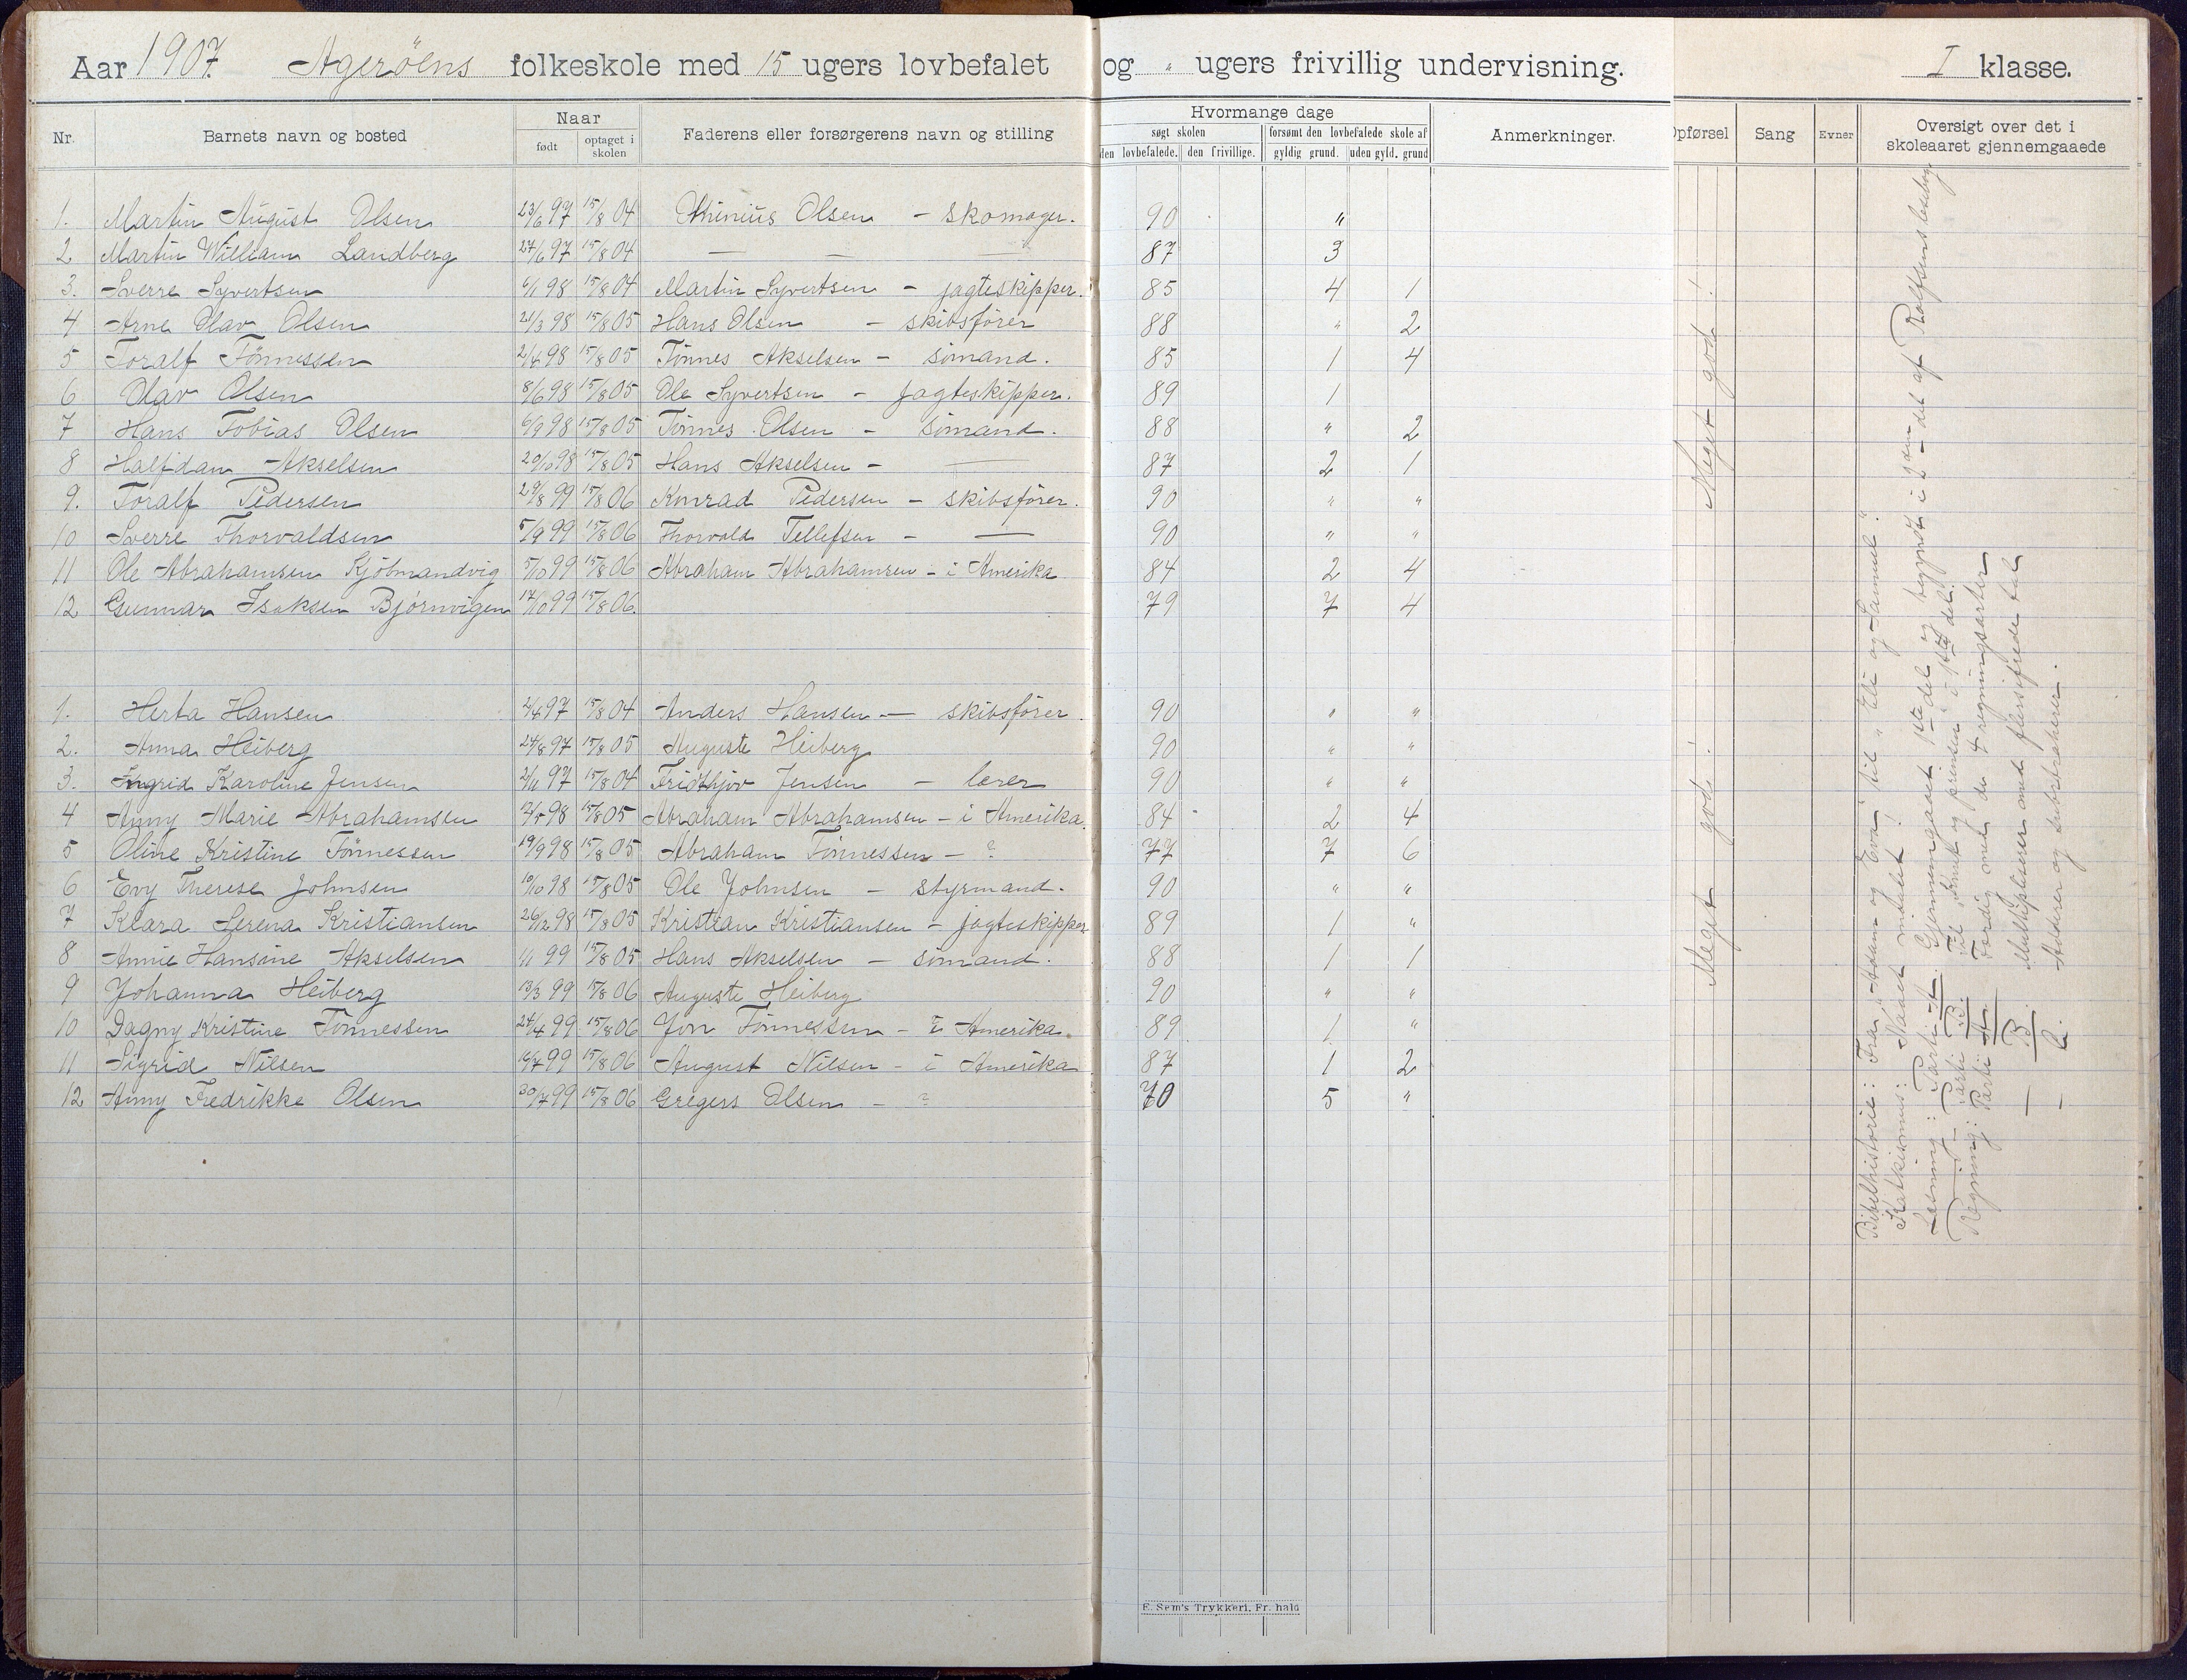 Aar 1907. Agerøens folkeskole med 15 ugers lovbefalet og " ugers frivillig undervisning. I klasse.
Nr. Barnets navn og bosted Naar født optaget i skolen Faderens eller forsørgerens navn og stilling
Hvormange dage
søgt skolen forsømt den lovbefalede skole af
den lovbefalede. den frivillige. gyldig grund. uden gyld. grund
Anmerkninger. Opførsel Sang Evner Oversigt over det i skoleaaret gjennemgaaede
1. Martin August Olsen 23/6 97 15/8 04 Thinius Olsen - skomager. 90 "
2 Martin William Landberg 27/6 97 15/8 04 — — — 87 3
3. Sverre Syvertsen 6/1 98 15/8 04 Martin Syvertsen - jagteskipper. 85 4 1
4 Arne Olav Olsen 21/3 98 15/8 05 Hans Olsen - skibsfører 88 " 2
5 Toralf Tønnessen 2/4 98 15/8 05 Tønnes Akselsen - sømand. 85 1 4
6 Olav Olsen 8/6 98 15/8 05 Ole Syvertsen - jagteskipper. 89 1
7 Hans Tobias Olsen 6/9 98 15/8 05 Tønnes Olsen - sømand. 88 " 2
8 Halfdan Akselsen 20/10 98 15/8 05 Hans Akselsen - — 87 2 1
9. Toralf Pedersen 29/8 99 15/8 06 Konrad Pedersen - skibsfører. 90 " "
10 Sverre Thorvaldsen 5/9 99 15/8 06 Thorvald Tellefsen - — 90 " "
11 Ole Abrahamsen Kjøbmandvig 5/10 99 15/8 06 Abraham Abrahamsen - i Amerika 84 2 4
12 Gunnar Isaksen Bjørnvigen 17/10 99 15/8 06. 79 7 4
1. Herta Hansen 2/4 97 15/8 04 Anders Hansen - skibsfører. 90 " "
2. Anna Heiberg 24/8 97 15/8 05 Auguste Heiberg 90 " "
3. Ingrid Karoline Jensen 2/11 97 15/8 04 Fridthjov Jensen - lærer 90 " "
4 Anny Marie Abrahamsen 12/5 98 15/8 05 Abraham Abrahamsen - i Amerika. 84 2 4
5 Oline Kristine Tønnessen 19/9 98 15/8 05 Abraham Tønnessen - ? 77 7 6
6 Evy Therese Johnsen 10/10 98 15/8 05 Ole Johnsen - styrmand. 90 " "
7 Klara Serena Kristiansen 26/12 98 15/8 05 Kristian Kristiansen - jagteskipper 89 1 "
8 Annie Hansine Akselsen 1/1 99 15/8 05 Hans Akselsen - sømand. 88 1 1
9 Johanna Heiberg 13/3 99 15/8 06 Auguste Heiberg 90 " "
10 Dagny Kristine Tønnessen 24/4 99 15/8 06 Jon Tønnessen - i Amerika. 89 1 "
11 Sigrid Nilsen 16/7 99 15/8 06 August Nilsen - i Amerika 87 1 2
12 Anny Fredrikke Olsen 30/7 99 15/8 06 Gregers Olsen - ? 70 5 "
Meget god!
Meget god!
Bibelhistorie: Fra "Adam og Eva" til "Eli og Samuel".
Katkismus: Naaet indadet!
Læsning: Parti A. Gjennemgaaet 1ste del og begyndt igjen i 2- del af Rolfsens læsebog
— Parti B. Til og prinsen i 1ste del.
Regning: Parti A Færdig med de 4 regningsarter
— B. Multipliserer med flersifrede tal
— C. Adderer og subtraherer.
E. Sem's Trykkeri, Fr. hald